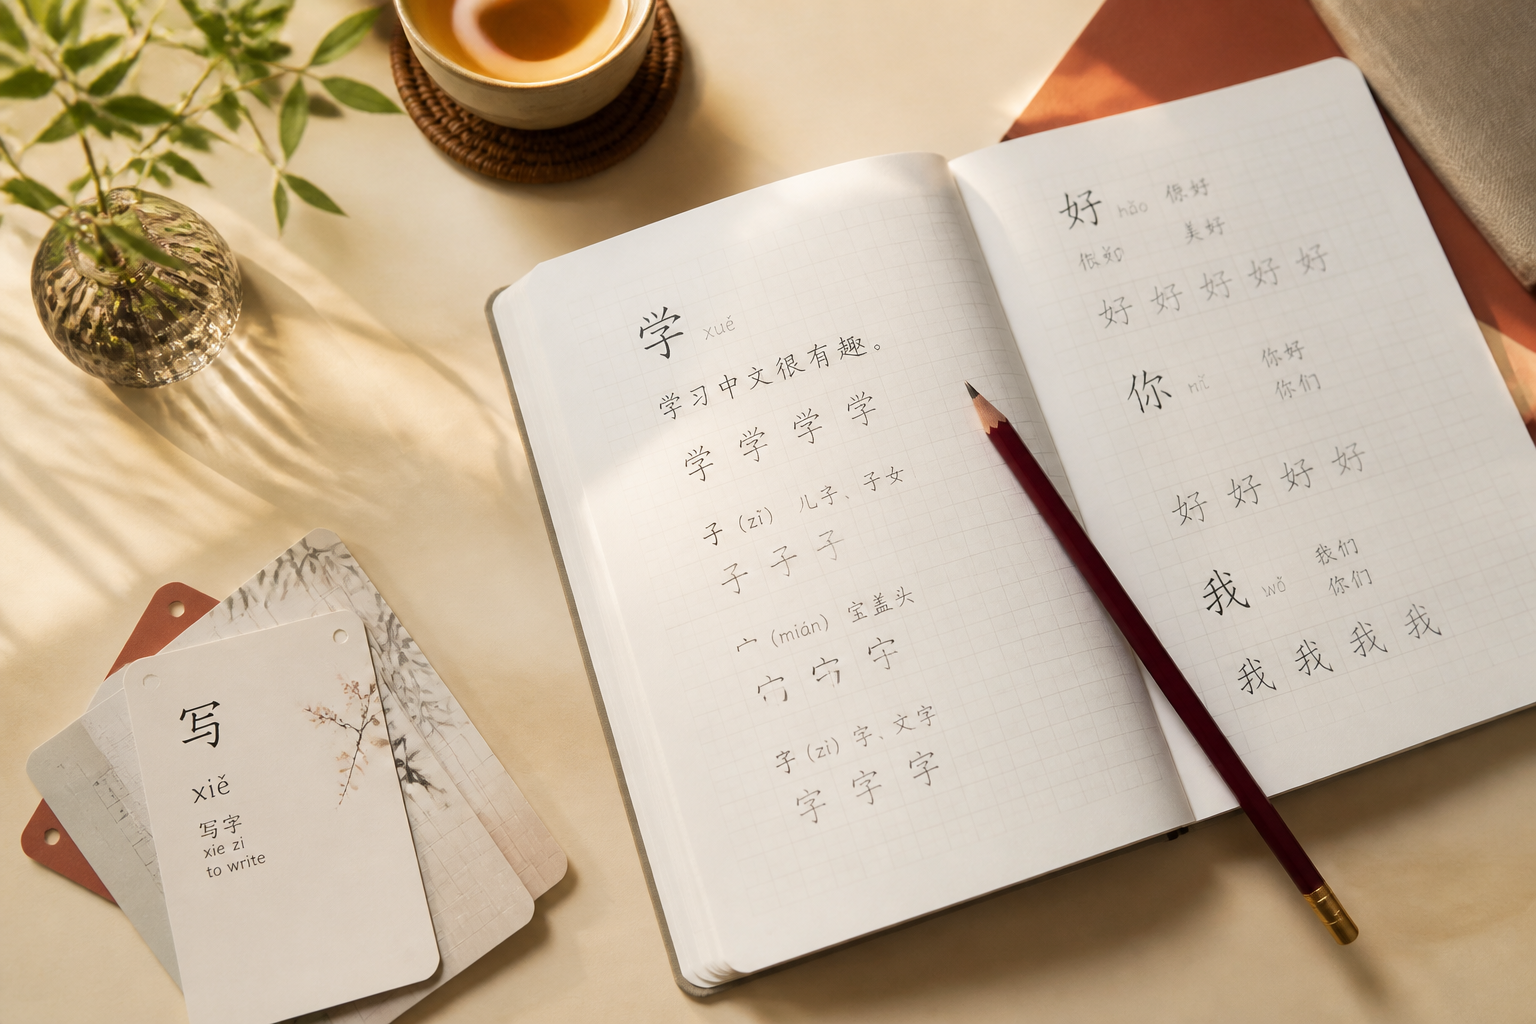 学 xué
学习中文很有趣。
学 学 学 学
子 (zǐ) 儿子、子女
子 子 子
宀 (mián) 宝盖头
字 (zì) 字、文字
字 字 字
好 hǎo 你好
美好
好 好 好 好 好
你 nǐ 你好
你们
好 好 好 好
我 wǒ 我们
你们
我 我 我 我
写
xiě
写字
xie zi
to write